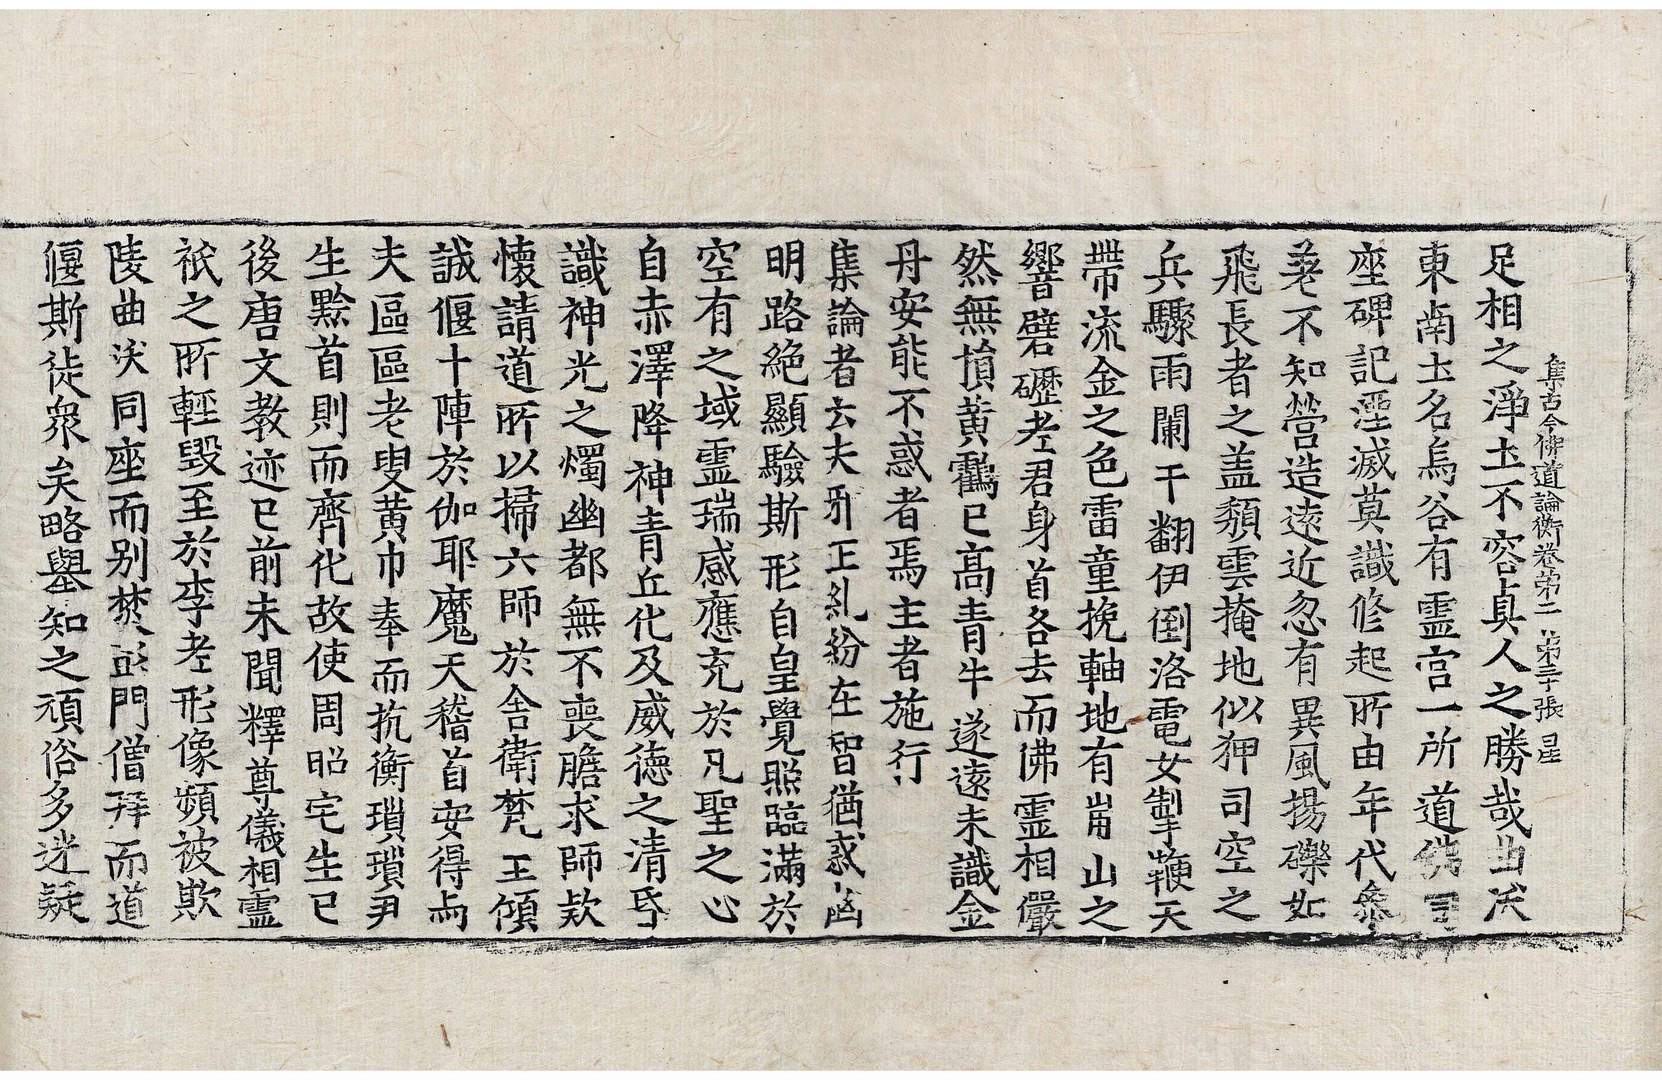 集古今佛道論衡卷第二 第三十張 星
足相之淨土不容真人之勝哉曲沃
東南土名烏谷有靈宮一所道佛同
座碑記湮滅莫識修起所由年代參
差不知營造遠近忽有異風揚礫如
飛長者之盖頹雲掩地似狎司空之
兵驟雨闌干翻伊倒洛電女掣鞭天
帶流金之色雷童挽軸地有崩山之
響礕礰老君身首各去而佛靈相儼
然無損黃鶴已高青牛遂遠未識金
丹安能不惑者焉主者施行
集論者云夫邪正糺紛在智猶惑幽
明路絶顯驗斯形自皇覺照臨滿於
空有之域靈瑞感應充於凡聖之心
自赤澤降神青丘化及威德之清昏
識神光之燭幽都無不喪膽求師欵
懷請道所以掃六師於舍衛梵王傾
誠偃十陣於伽耶魔天稽首安得與
夫區區老叟黃巾奉而抗衡瑣瑣尹
生黔首則而齊化故使周昭宅生已
後唐文教迹已前未聞釋尊儀相靈
祇之所輕毀至於李老形像頻被欺
陵曲沃同座而別焚玄門僧拜而道
偃斯徒衆矣略舉知之頑俗多迷疑